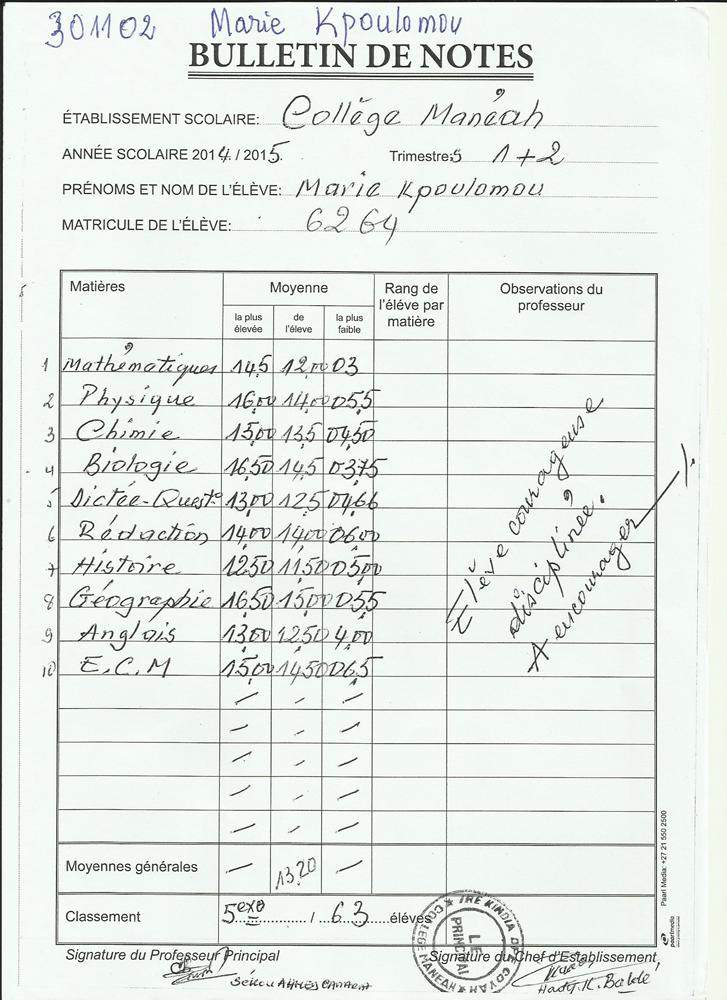 301102 Marie Kpoulomou
BULLETIN DE NOTES
ÉTABLISSEMENT SCOLAIRE: Collège Manéah
ANNÉE SCOLAIRE 2014 / 2015. Trimestre:s 1+2
PRÉNOMS ET NOM DE L'ÉLÈVE: Marie Kpoulomou
MATRICULE DE L'ÉLÈVE: 6264
Matières Moyenne Rang de l'éléve par matière Observations du professeur
la plus élevée de l'éleve la plus faible
1 Mathématiques 14,5 12,00 03
2 Physique 16,00 14,00 05,5
3 Chimie 15,00 13,5 04,50
4 Biologie 16,50 14,5 03,75
5 Dictée-Quest° 13,00 12,5 04,66
6 Rédaction 14,00 14,00 06,00
7 Histoire 12,50 11,50 05,00
8 Géographie 16,50 15,00 05,5
9 Anglais 13,00 12,50 4,00
10 E.C.M 15,00 14,50 06,5
Elève courageuse
disciplinée.
A encourager
Moyennes générales 13,20
Classement 5exo / 63 élèves
COLLEGE MANEAH IRE KINDIA DPE COYAH
LE PRINCIPAL
Signature du Professeur Principal Signature du Chef d'Etablissement
Sékou Ahmed Camara Hady K. Baldé
Paarl Media: +27 21 550 2500
paarlmedia